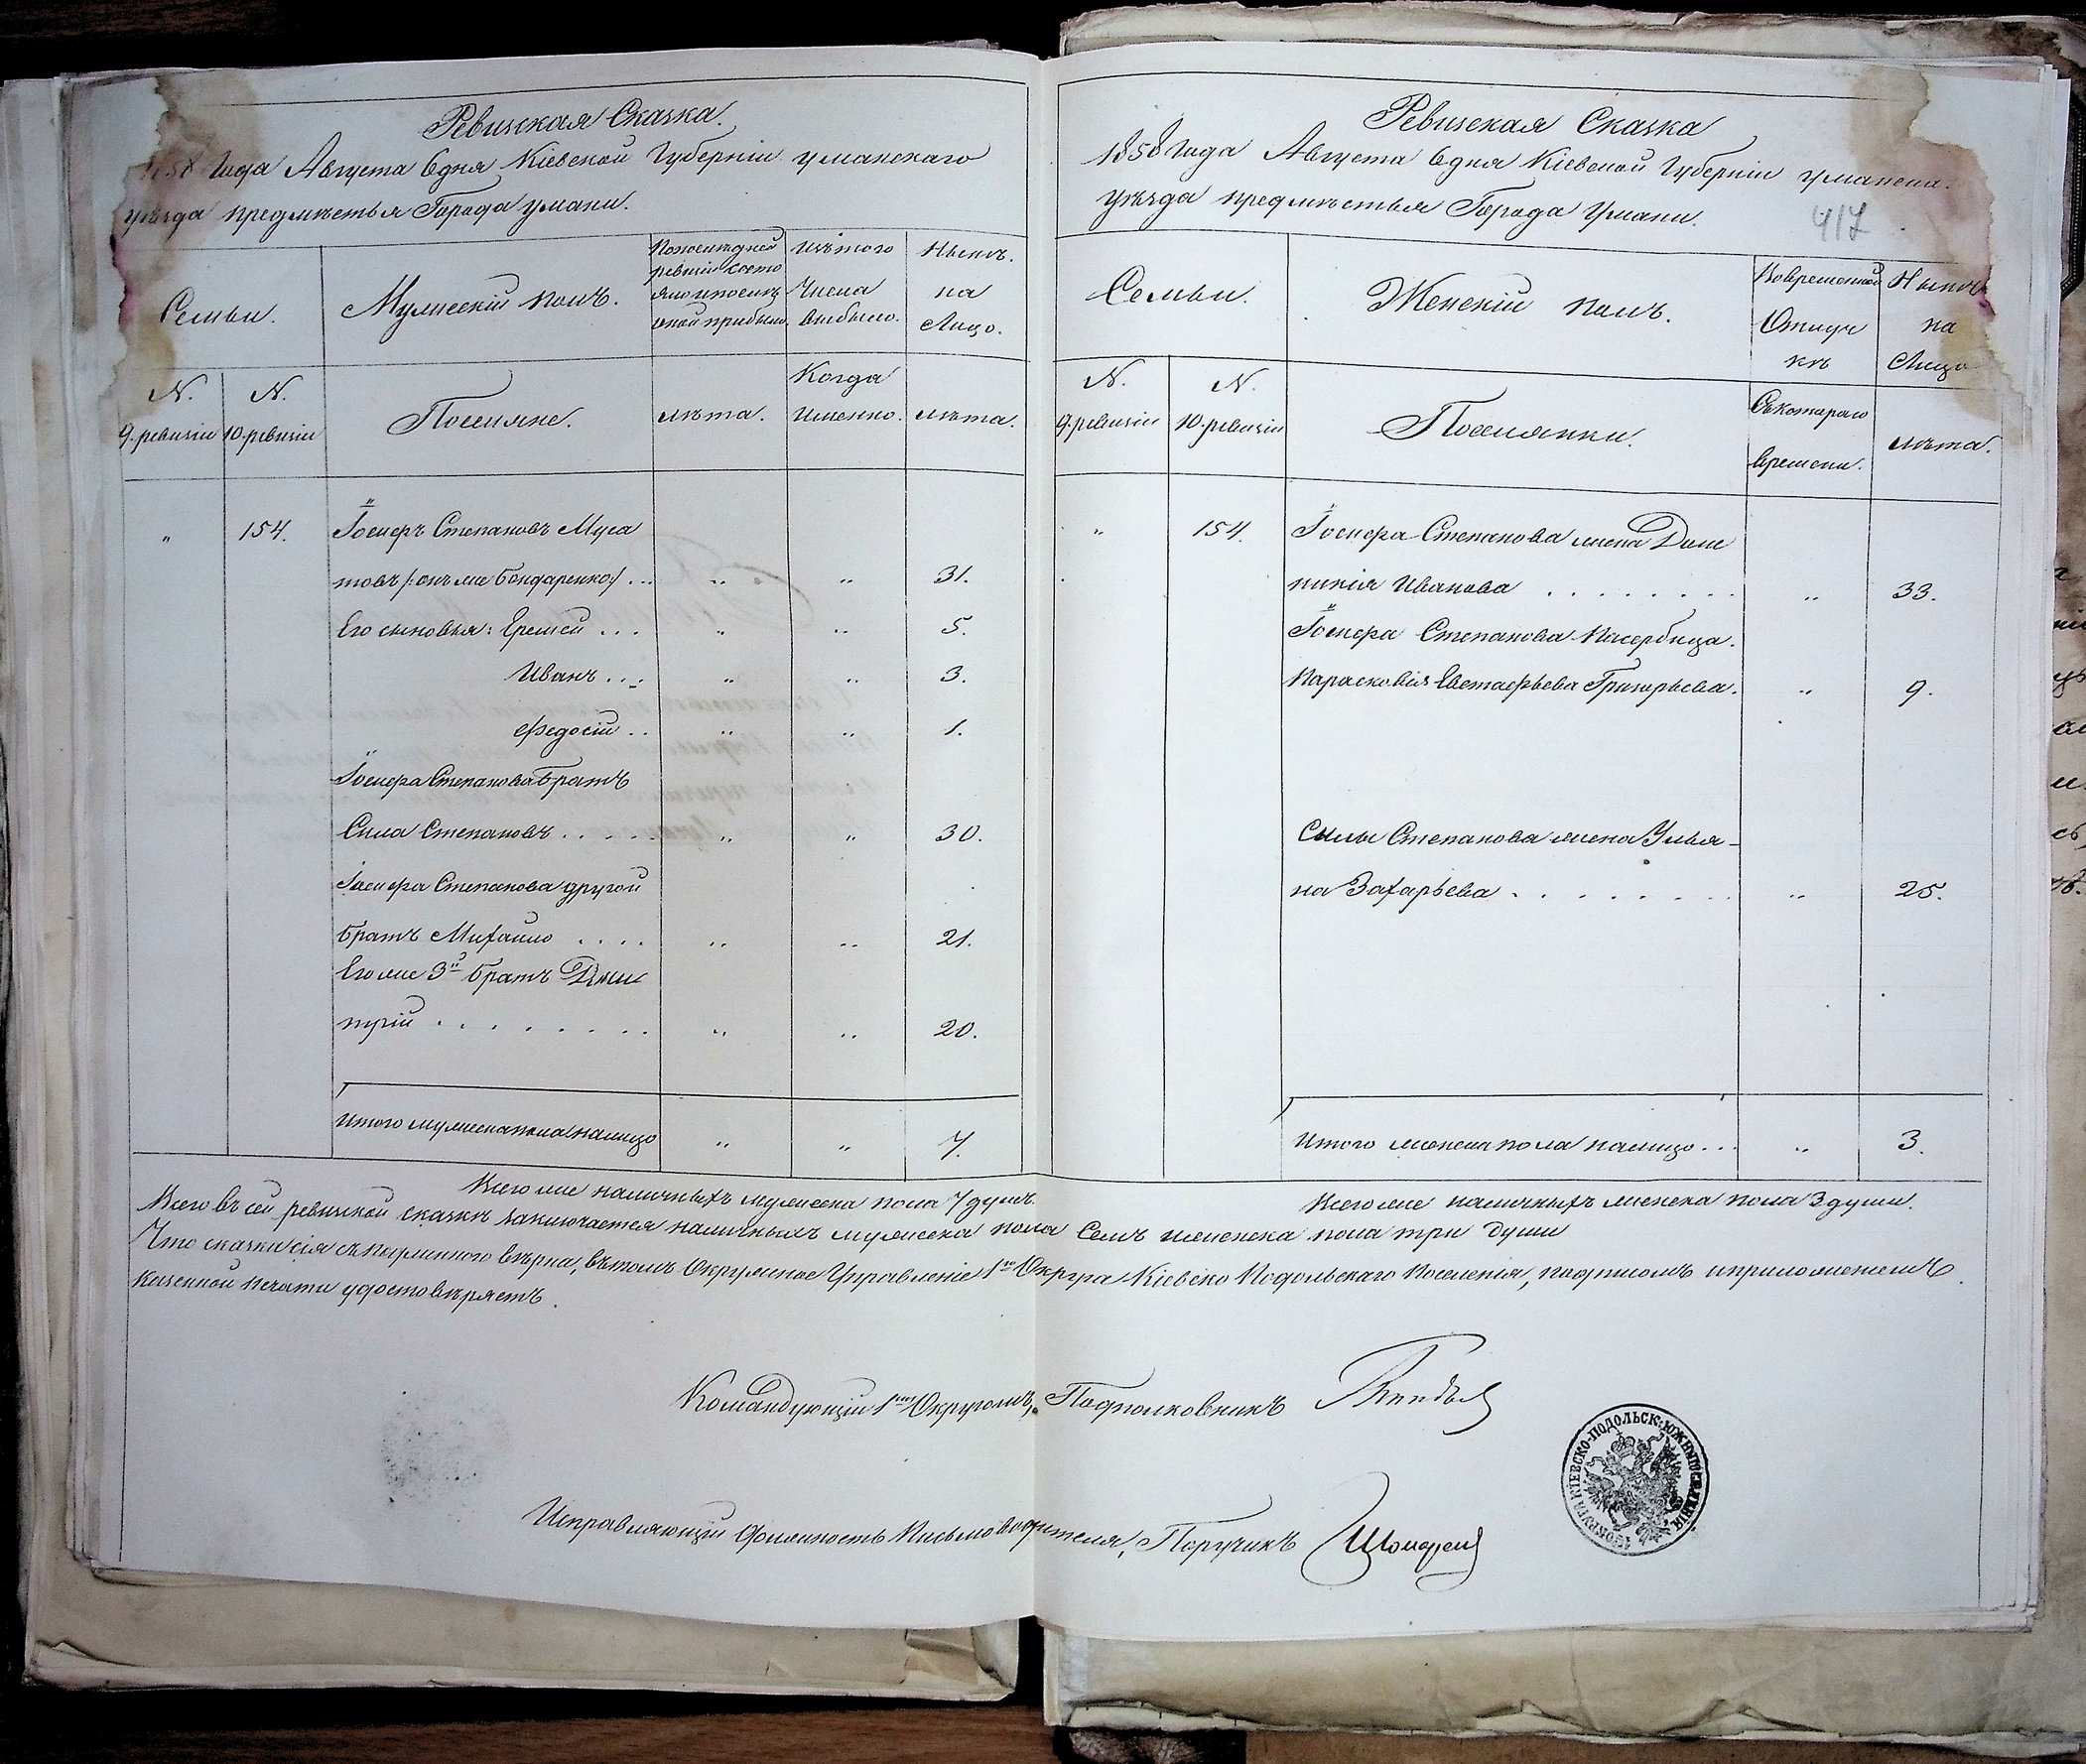 Ревизская Сказка.
1858 Года Августа 6 дня Кіевской Губерніи уманскаго
уѣзда предмѣстья Города умани.
Семьи.
Мужескій полъ.
По последней
ревизіи состо
яло и послѣ
оной прибыло.
Изъ того
Числа
выбыло.
Нынѣ
на
Лицо.
N.
9. ревизіи
N.
10. ревизіи
Поселяне.
лѣта.
Когда
именно.
лѣта.
" 154. Іосифъ Степановъ Муса
товъ /: онъ же Бондаренко :/ ... " " 31.
Его сыновья: Еремей ... " " 5.
Иванъ ... " " 3.
Федосій .. " " 1.
Іосифа Степанова братъ
Сила Степановъ ..... " " 30.
Іосифа Степанова другой
братъ Михайло .... " " 21.
Его же 3й братъ Дми
трій ........ " " 20.
Итого мужеска пола на лицо " " 7.
Всего же наличныхъ мужеска пола 7 душъ.
Ревизская Сказка
1858 Года Августа 6 дня Кіевской Губерніи уманска.
уѣзда предмѣстья Города Умани.
417
Семьи.
Женскій полъ.
Во временной
Отлуч
кѣ
Нынѣ
на
Лицо
N.
9. ревизіи
N.
10. ревизіи
Поселянки.
Съ котораго
времени.
лѣта.
" 154. Іосифа Степанова жена Доме
никія Иванова ....... " 33.
Іосифа Степанова Пасербица.
Парасковія Евстафьева Григорьева. " 9.
Силы Степанова жена Улья-
на Захарьева ........ " 25.
Итого женска пола на лицо ... " 3.
Всего же наличныхъ женска пола 3 души.
Всего въ сей ревизской сказкѣ заключается наличныхъ мужеска пола Семь женска пола три души
Что сказка сія съ подлиннаго вѣрна, въ томъ Окружное Управленіе 1го Округа Кіевско Подольскаго Поселенія, подписомъ и приложеніемъ
Казенной печати удостовѣряетъ.
Командующій 1мъ Округомъ, Подполковникъ
Исправляющій Должность Письмоводителя, Поручикъ